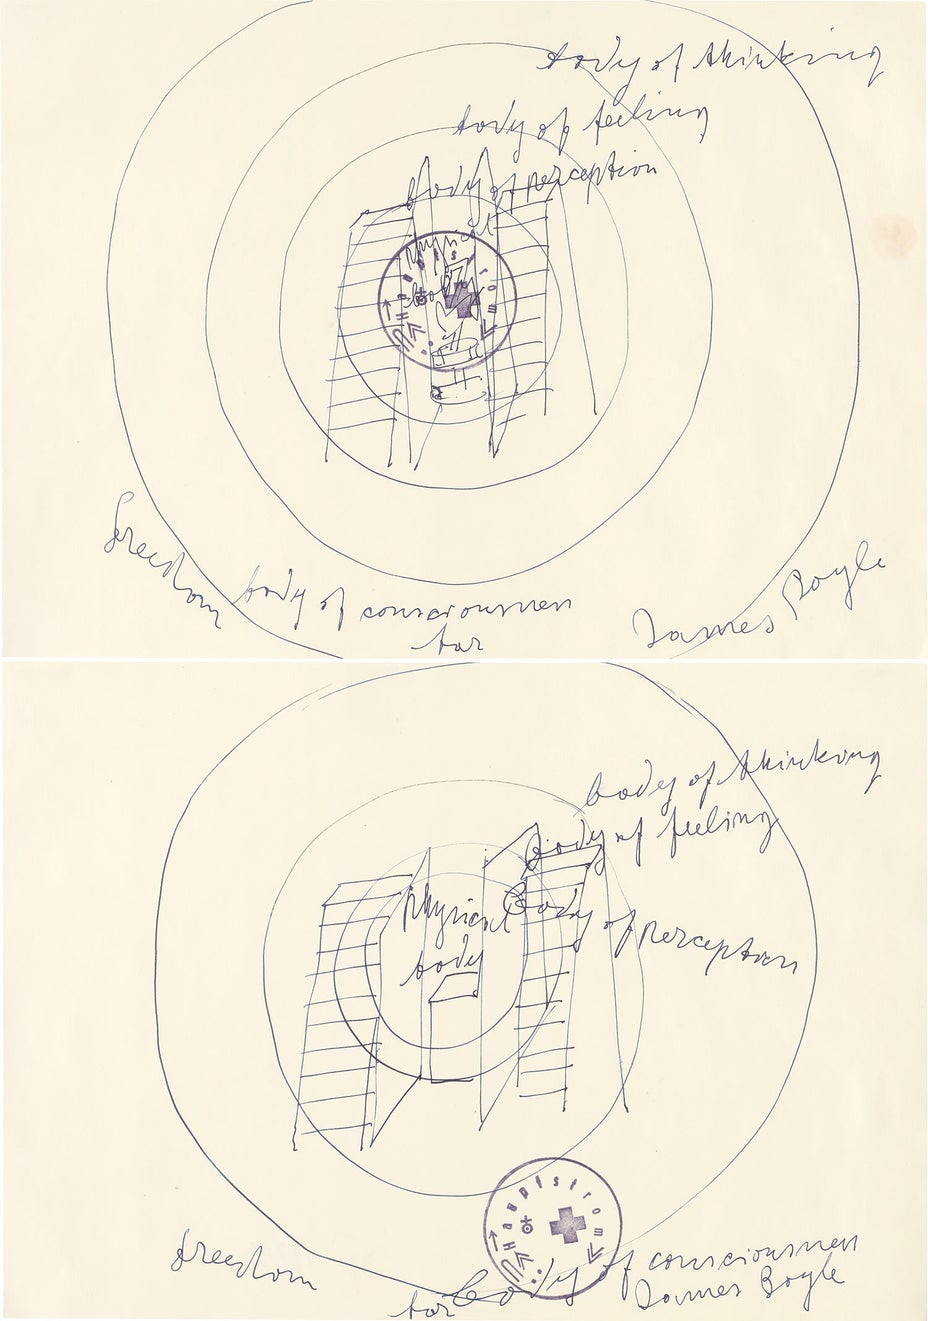 body of thinking
body of feeling
body of perception
physical
body
Hauptstrom
freedom
body of consciousness
for
James Boyle
body of thinking
body of feeling
physical
body
Body of perception
Hauptstrom
freedom
body of consciousness
for
James Boyle